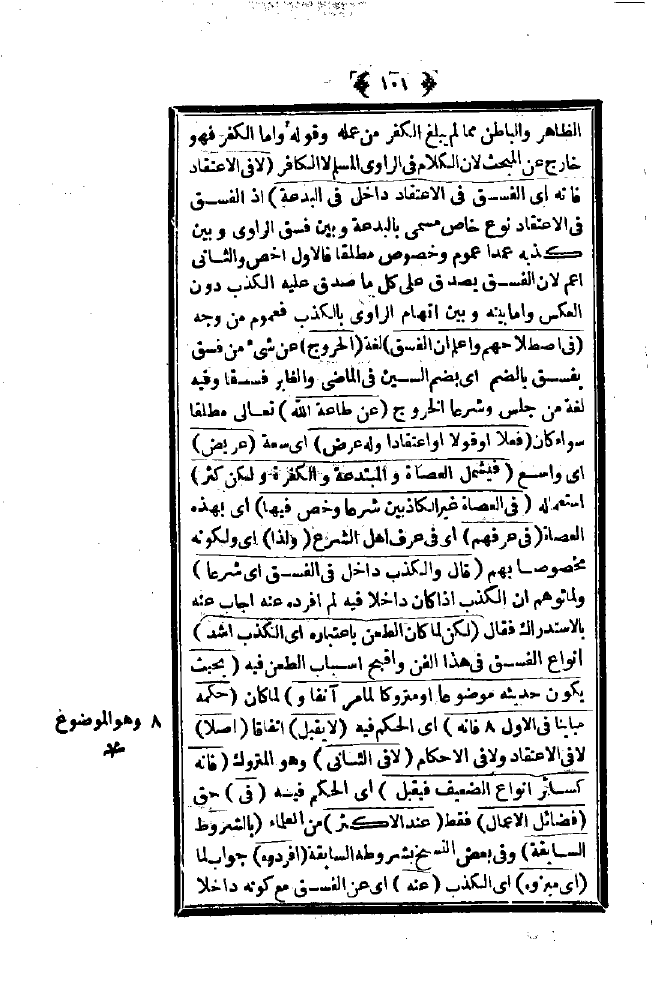 ﴿ ١٠١ ﴾
الظاهر والباطن مما لم يبلغ الكفر من عمله وقوله واما الكفر فهو
خارج عن المبحث لان الكلام فى الراوى المسلم لا الكافر (لا فى الاعتقاد
فانه اى الفسق فى الاعتقاد داخل فى البدعة) اذ الفسق
فى الاعتقاد نوع خاص مسمى بالبدعة وبين فسق الراوى وبين
كذبه عمدا عموم وخصوص مطلقا فالاول اخص والثانى
اعم لان الفسق يصدق على كل ما صدق عليه الكذب دون
العكس واما بينه وبين اتهام الراوى بالكذب فعموم من وجه
(فى اصطلاحهم واعلم ان الفسق) لغة (الخروج) عن شىء من فسق
يفسق بالضم اى بضم السين فى الماضى والغابر فسقا وفيه
لغة من جلس وشرعا الخروج (عن طاعة الله) تعالى مطلقا
سواء كان (فعلا او قولا او اعتقادا وله عرض) اى سعة (عريض)
اى واسع (فيشمل العصاة والمبتدعة والكفرة ولكن كثر)
استعماله (فى العصاة غير الكاذبين شرعا وخص فيها) اى بهذه
العصاة (فى عرفهم) اى فى عرف اهل الشرع (ولذا) اى ولكونه
مخصوصا بهم (قال والكذب داخل فى الفسق اى شرعا)
ولما توهم ان الكذب اذا كان داخلا فيه لم افرده عنه اجاب عنه
بالاستدراك فقال (لكن لما كان الطعن باعتباره اى الكذب اشد)
انواع الفسق فى هذا الفن واقبح اسباب الطعن فيه (بحيث
يكون حديثه موضوعا او متروكا لما مر آنفا و) لما كان (حكمه
مباينا فى الاول ٨ فانه) اى الحكم فيه (لا يقبل) اتفاقا (اصلا)
لا فى الاعتقاد ولا فى الاحكام (لا فى الثانى) وهو المتروك (فانه
كسائر انواع الضعيف فيقبل) اى الحكم فيه (فى) حق
(فضائل الاعمال) فقط (عند الاكثر) من العلماء (بالشروط
السابقة) وفى بعض النسخ بشروطه السابقة (افردوه) جواب لما
(اى ميزوه) اى الكذب (عنه) اى عن الفسق مع كونه داخلا
٨ وهو الموضوع